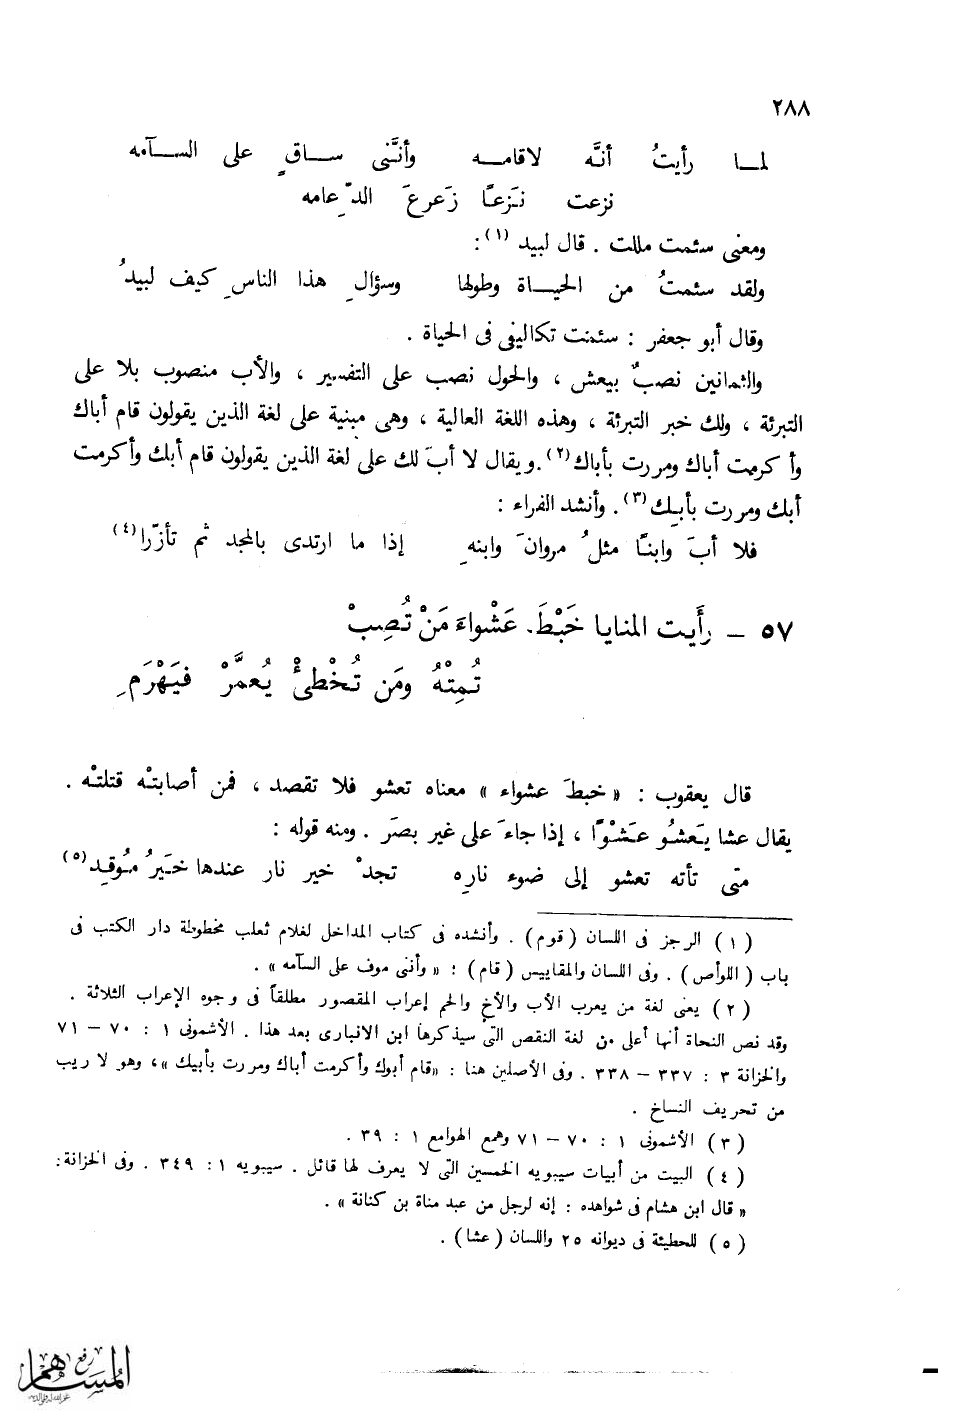 ٢٨٨
لمـــا رأيتُ أنَّه لاقامـــه وأنَّنى ســـاقٍ على الســـآمه
نزعت نَزعًا زَعرعَ الدِّعامه
ومعنى سئمت مللت . قال لبيد (١) :
ولقد سئمتُ من الحيـــاة وطولها وسؤالِ هذا الناسِ كيف لبيدُ
وقال أبو جعفر : سئمت تكاليفى فى الحياة .
والثمانين نصبٌ بيعش ، والحول نصب على التفسير ، والأب منصوب بلا على
التبرئة ، ولك خبر التبرئة ، وهذه اللغة العالية ، وهى مبنية على لغة الذين يقولون قام أباك
وأكرمت أباك ومررت بأباك (٢) . ويقال لا أبَ لك على لغة الذين يقولون قام أبك وأكرمت
أبك ومررت بأبِك (٣) . وأنشد الفراء :
فلا أبَ وابنًا مثلُ مروانَ وابنهِ إذا ما ارتدى بالمجد ثم تأزّرا (٤)
٥٧ – رأَيت المنايا خَبْطَ عَشْواءَ مَنْ تُصِبْ
تُمِتْهُ ومَن تُخْطئْ يُعمَّرْ فيَهْرَمِ
قال يعقوب : « خبطَ عشواء » معناه تعشو فلا تقصد ، فمن أصابتْه قتلتْه .
يقال عشا يَعشُو عَشْوًا ، إذا جاءَ على غير بصَر . ومنه قوله :
متى تأته تعشو إلى ضوء نارِه تجدْ خير نار عندها خيَرُ مُوقِد (٥)
(١) الرجز فى اللسان (قوم) . وأنشده فى كتاب المداخل لغلام ثعلب مخطوطة دار الكتب فى
باب (اللوأص) . وفى اللسان والمقاييس (قام) : « وأننى موف على السآمه » .
(٢) يعنى لغة من يعرب الأب والأخ والحم إعراب المقصور مطلقاً فى وجوه الإعراب الثلاثة .
وقد نص النحاة أنها أعلى من لغة النقص التى سيذكرها ابن الانبارى بعد هذا . الأشمونى ١ : ٧٠ – ٧١
والخزانة ٣ : ٣٣٧ – ٣٣٨ . وفى الأصلين هنا : «قام أبوك وأكرمت أباك ومررت بأبيك » ، وهو لا ريب
من تحريف النساخ .
(٣) الأشمونى ١ : ٧٠ – ٧١ وهمع الهوامع ١ : ٣٩ .
(٤) البيت من أبيات سيبويه الخمسين التى لا يعرف لها قائل . سيبويه ١ : ٣٤٩ . وفى الخزانة :
« قال ابن هشام فى شواهده : إنه لرجل من عبد مناة بن كنانة » .
(٥) للحطيئة فى ديوانه ٢٥ واللسان (عشا) .
رفع
المساهم